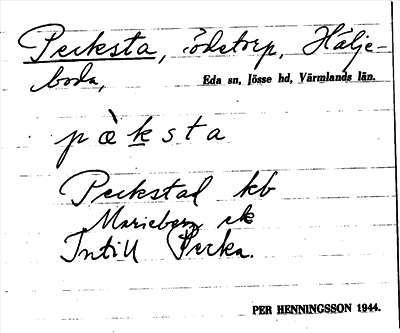 Perksta, ödetorp, Hälje-
boda,
Eda sn, Jösse hd, Värmlands län.
pæ̀ksta
Perkstad kb
Marieberg ek
Intill Perka.
PER HENNINGSSON 1944.